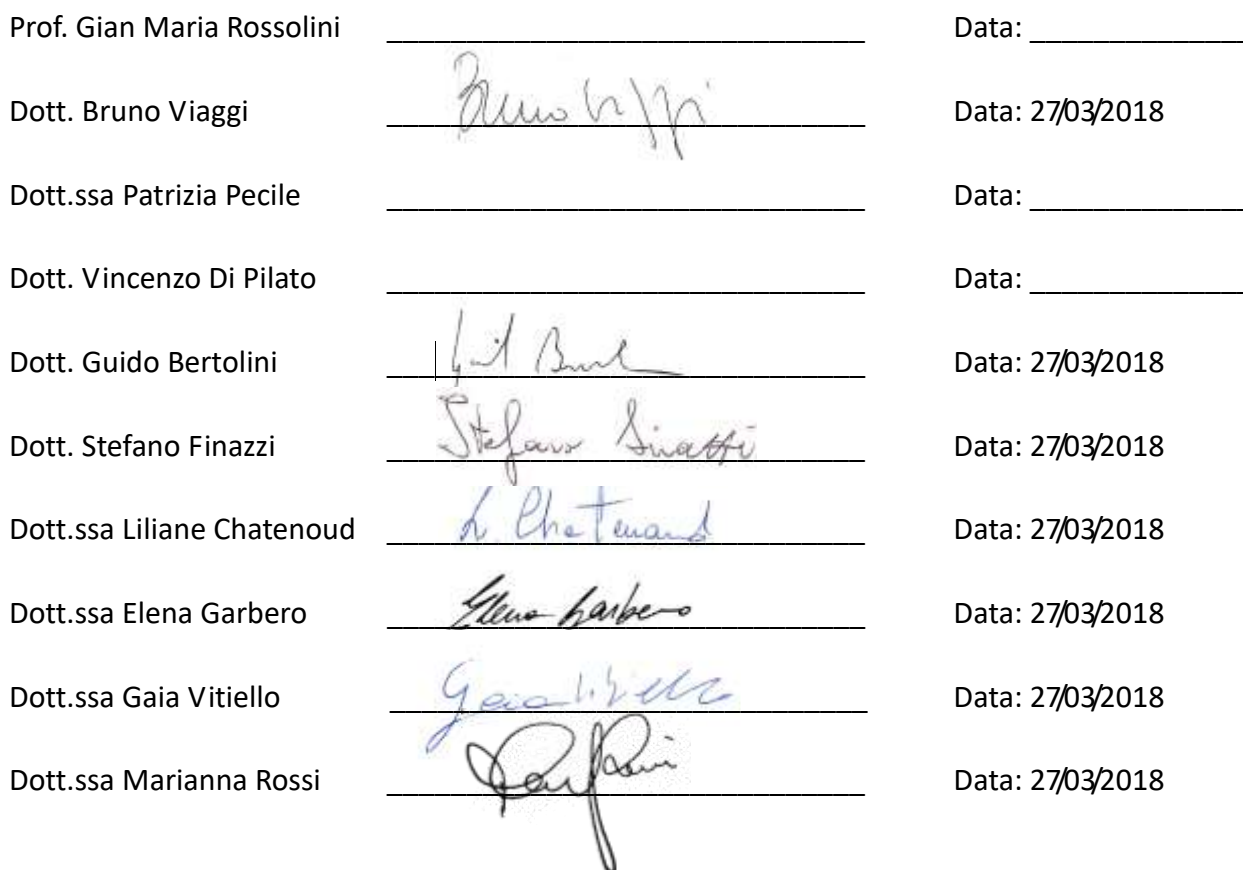 Prof. Gian Maria Rossolini ______________________________ Data: ______________
Dott. Bruno Viaggi Bruno Viaggi Data: 27/03/2018
Dott.ssa Patrizia Pecile ______________________________ Data: ______________
Dott. Vincenzo Di Pilato ______________________________ Data: ______________
Dott. Guido Bertolini Data: 27/03/2018
Dott. Stefano Finazzi Stefano Finazzi Data: 27/03/2018
Dott.ssa Liliane Chatenoud L. Chatenoud Data: 27/03/2018
Dott.ssa Elena Garbero Elena Garbero Data: 27/03/2018
Dott.ssa Gaia Vitiello Gaia Vitiello Data: 27/03/2018
Dott.ssa Marianna Rossi Data: 27/03/2018